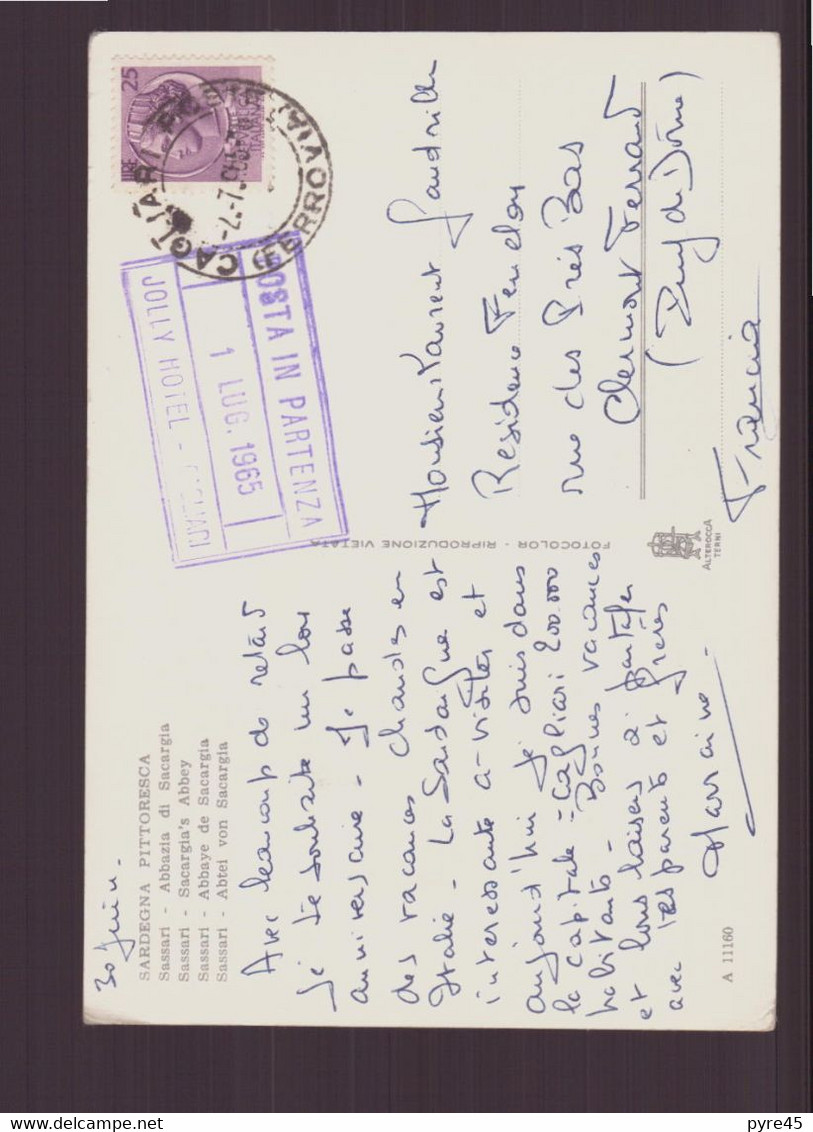 30 Juin -
SARDEGNA PITTORESCA
Sassari - Abbazia di Sacargia
Sassari - Sacargia's Abbey
Sassari - Abbaye de Sacargia
Sassari - Abtei von Sacargia
Avec beaucoup de retard
je te souhaite un bon
anniversaire - Je passe
des vacances chaudes en
Italie - La Sardaigne est
interessante a visiter et
aujourd'hui je suis dans
la capitale : Cagliari 200.000
habitants - Bonnes vacances
et bons baisers à partager
avec tes parents et frères
Marraine -
A 11160
FOTOCOLOR - RIPRODUZIONE VIETATA
ALTEROCCA
TERNI
LIRE 25
CAGLIARI
FERROVIA
POSTA IN PARTENZA
1 LUG. 1965
JOLLY HOTEL - CAGLIARI
Monsieur Laurent
Residence Fenelon
rue des Près Bas
Clermont Ferrand
(Puy de Dôme)
Francia
pyre45